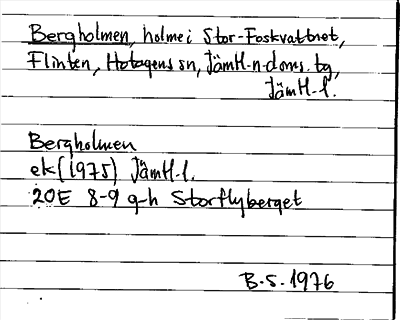 Bergholmen, holme i Stor-Foskvattnet,
Flinten, Hotagens sn, Jämtl-n-doms. tg,
Jämtl-l.
Bergholmen
ek (1975) Jämtl.l.
20E 8-9 g-h Storflyberget
B.S. 1976